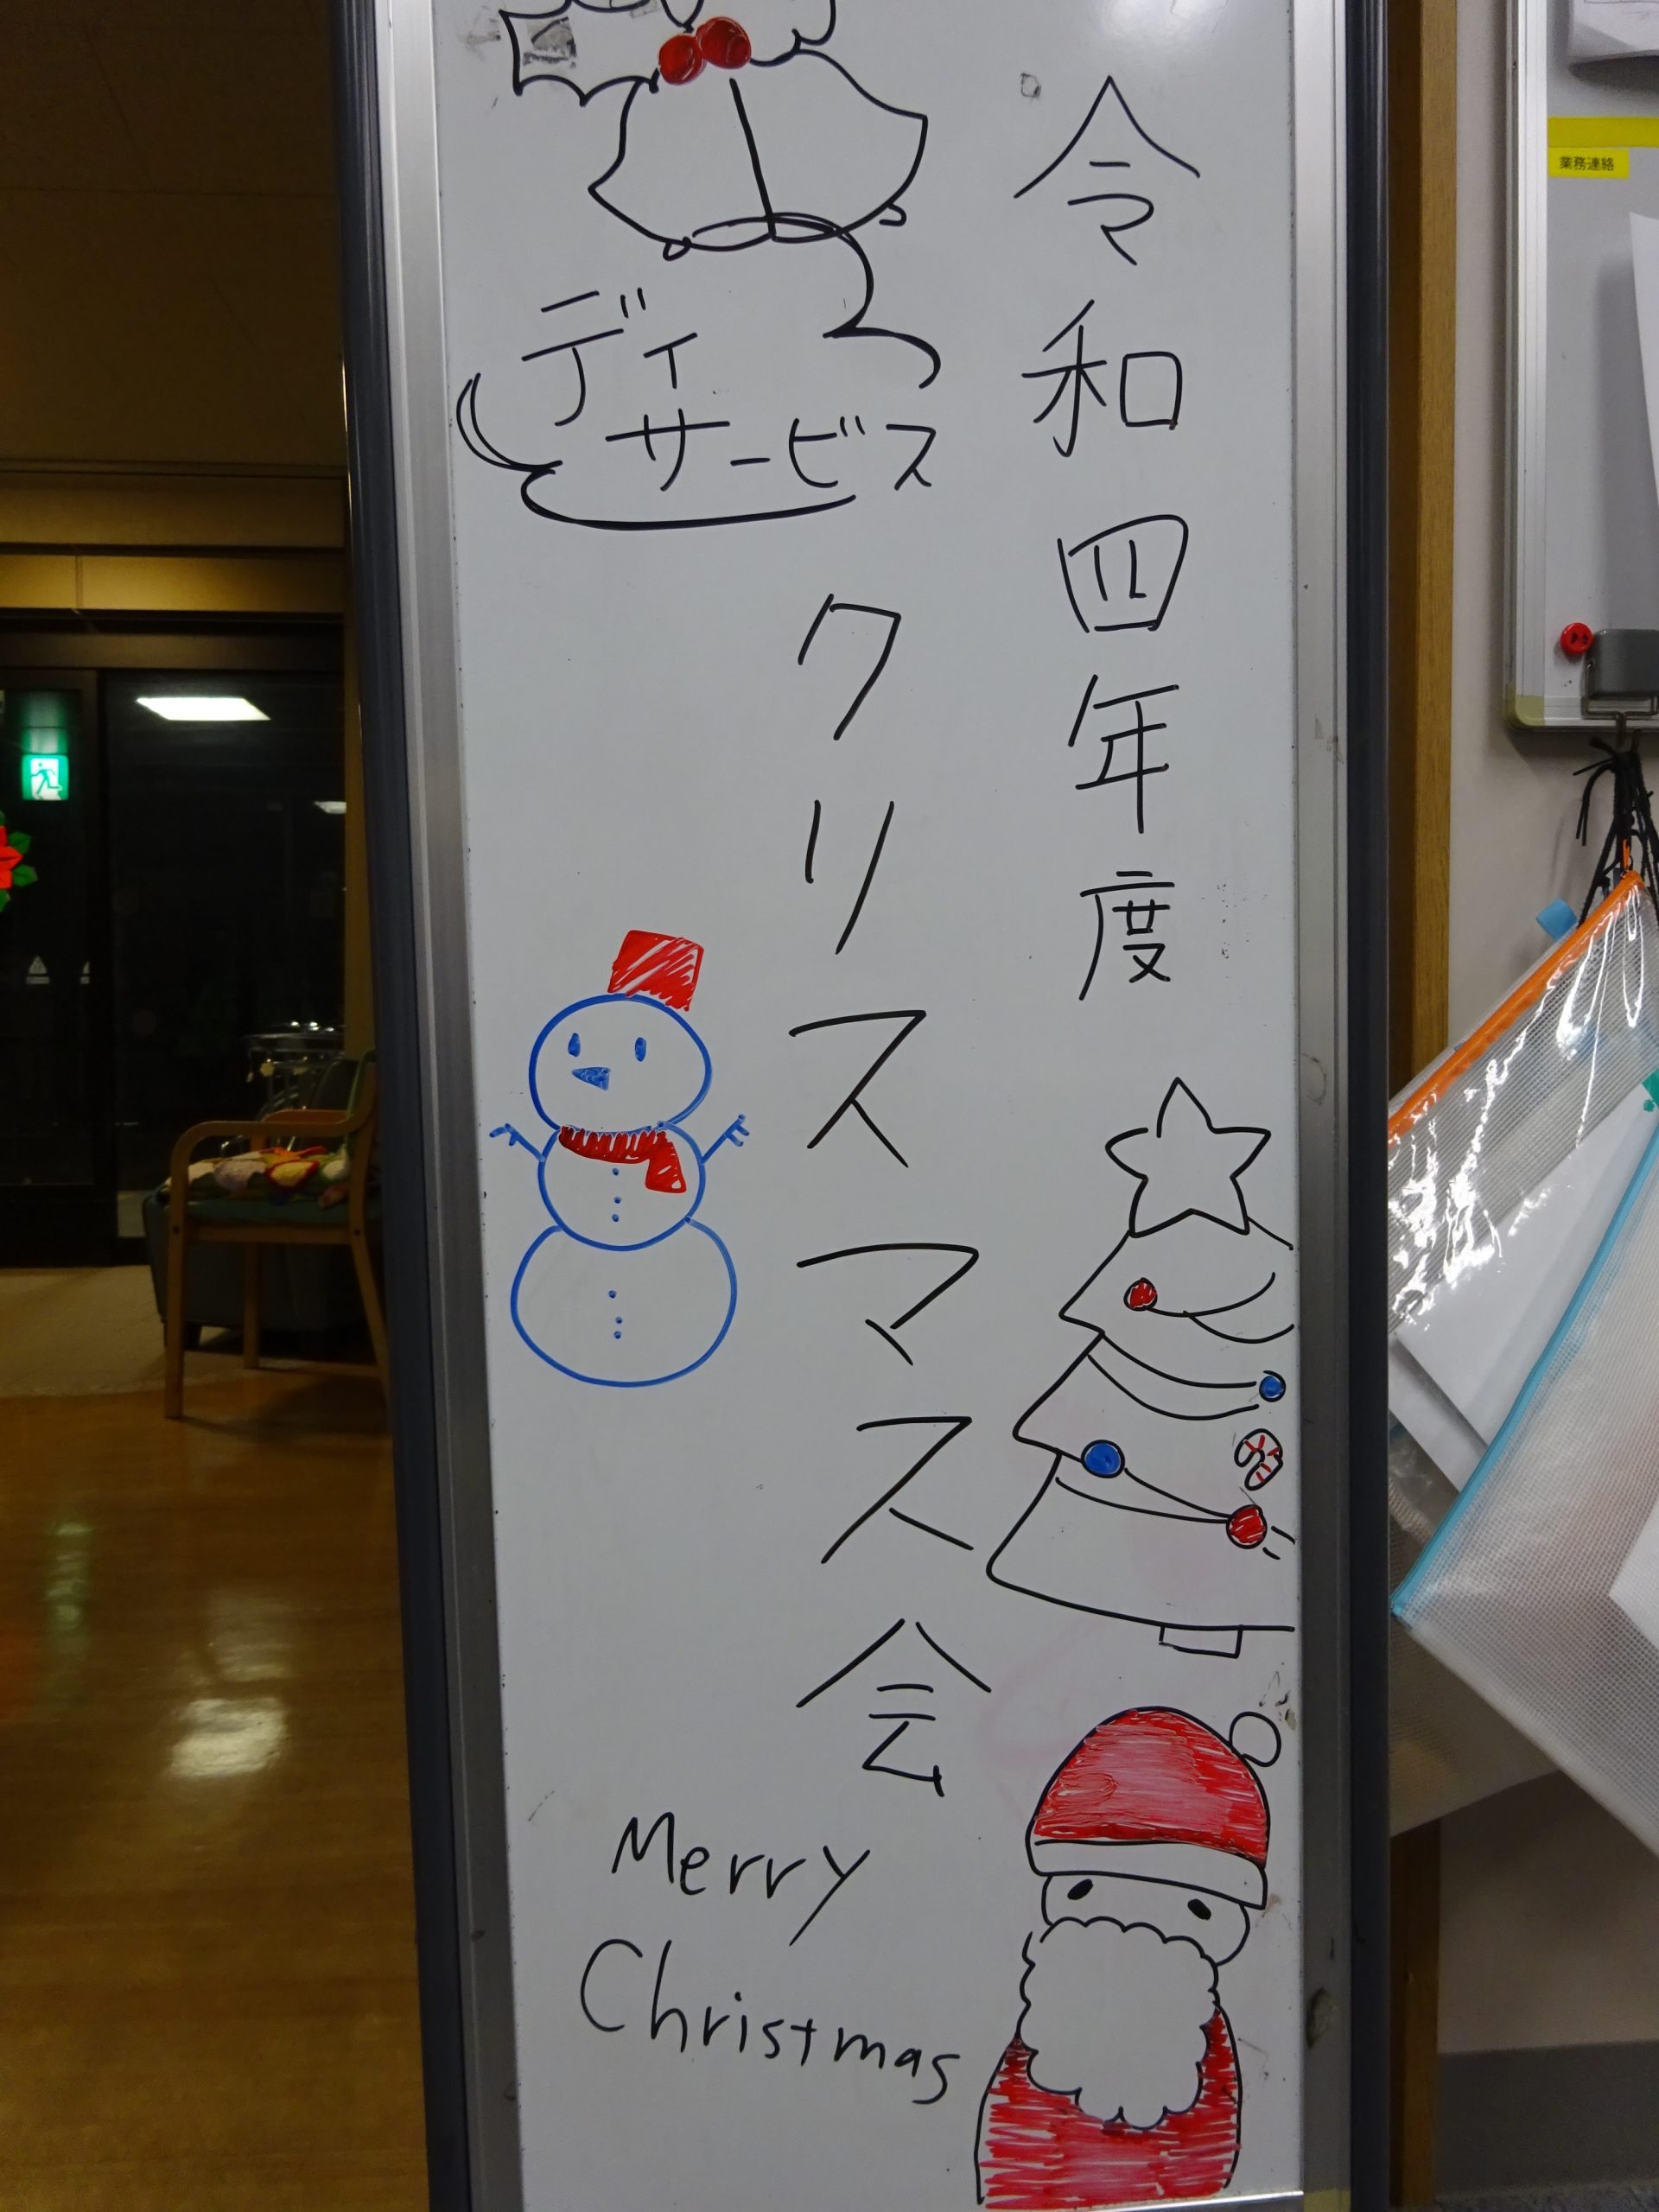 令和四年度
ディ
サービス
クリスマス会
Merry
Christmas
業務連絡